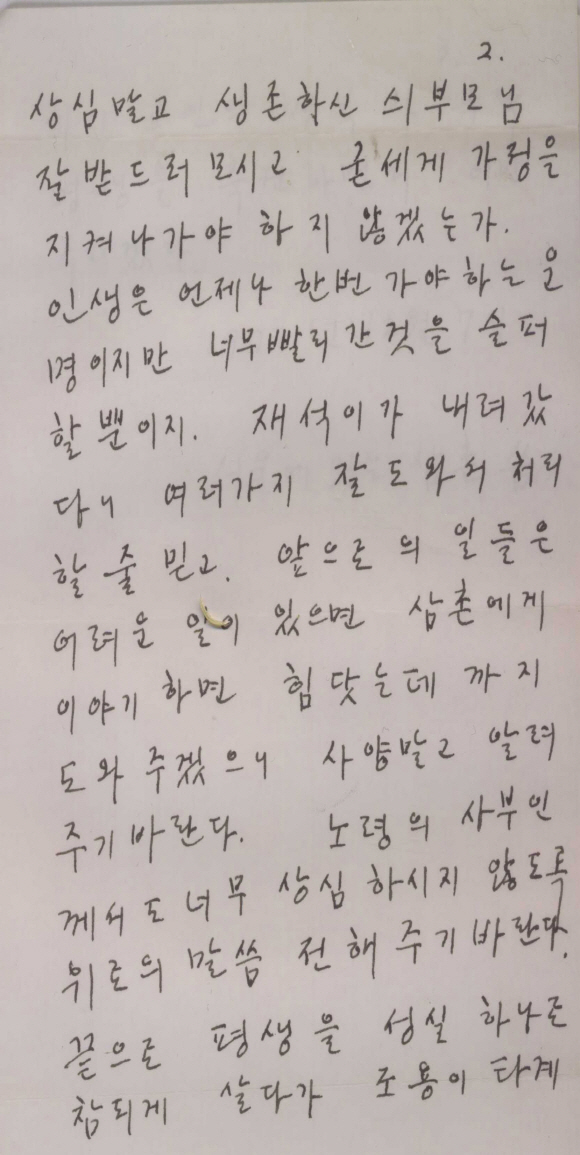 2.
상심말고 생존하신 싀부모님
잘 받드러 모시고 굳세게 가정을
지켜나가야 하지 않겠는가.
인생은 언제나 한번 가야하는 운
명이지만 너무빨리 간것을 슬퍼
할 뿐이지. 재석이가 내려갔
다니 여러가지 잘 도와서 처리
할 줄 믿고. 앞으로의 일들은
어려운 일이 있으면 삼촌에게
이야기 하면 힘닷는데 까지
도와주겠으니 사양말고 알려
주기바란다. 노령의 사부인
께서도 너무 상심 하시지 않도록
위로의 말씀 전해주기바란다.
끝으로 평생을 성실 하나로
참되게 살다가 조용이 타계